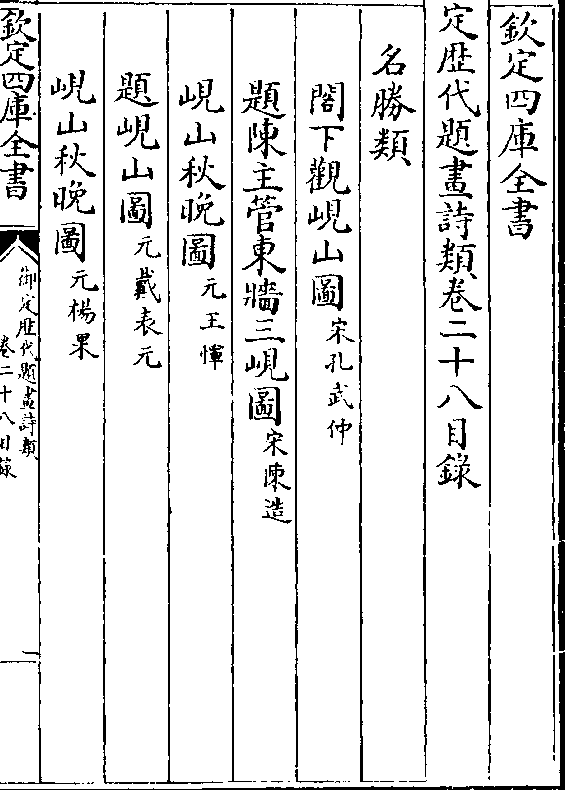 欽定四庫全書
定歴代題畫詩類卷二十八目錄
名勝類
閣下觀峴山圖 宋孔武仲
題陳主管東牆三峴圖 宋陳造
峴山秋晚圖 元王惲
題峴山圖 元戴表元
峴山秋晚圖 元楊果
欽定四庫全書
御定歴代題畫詩類
卷二十八目錄
一